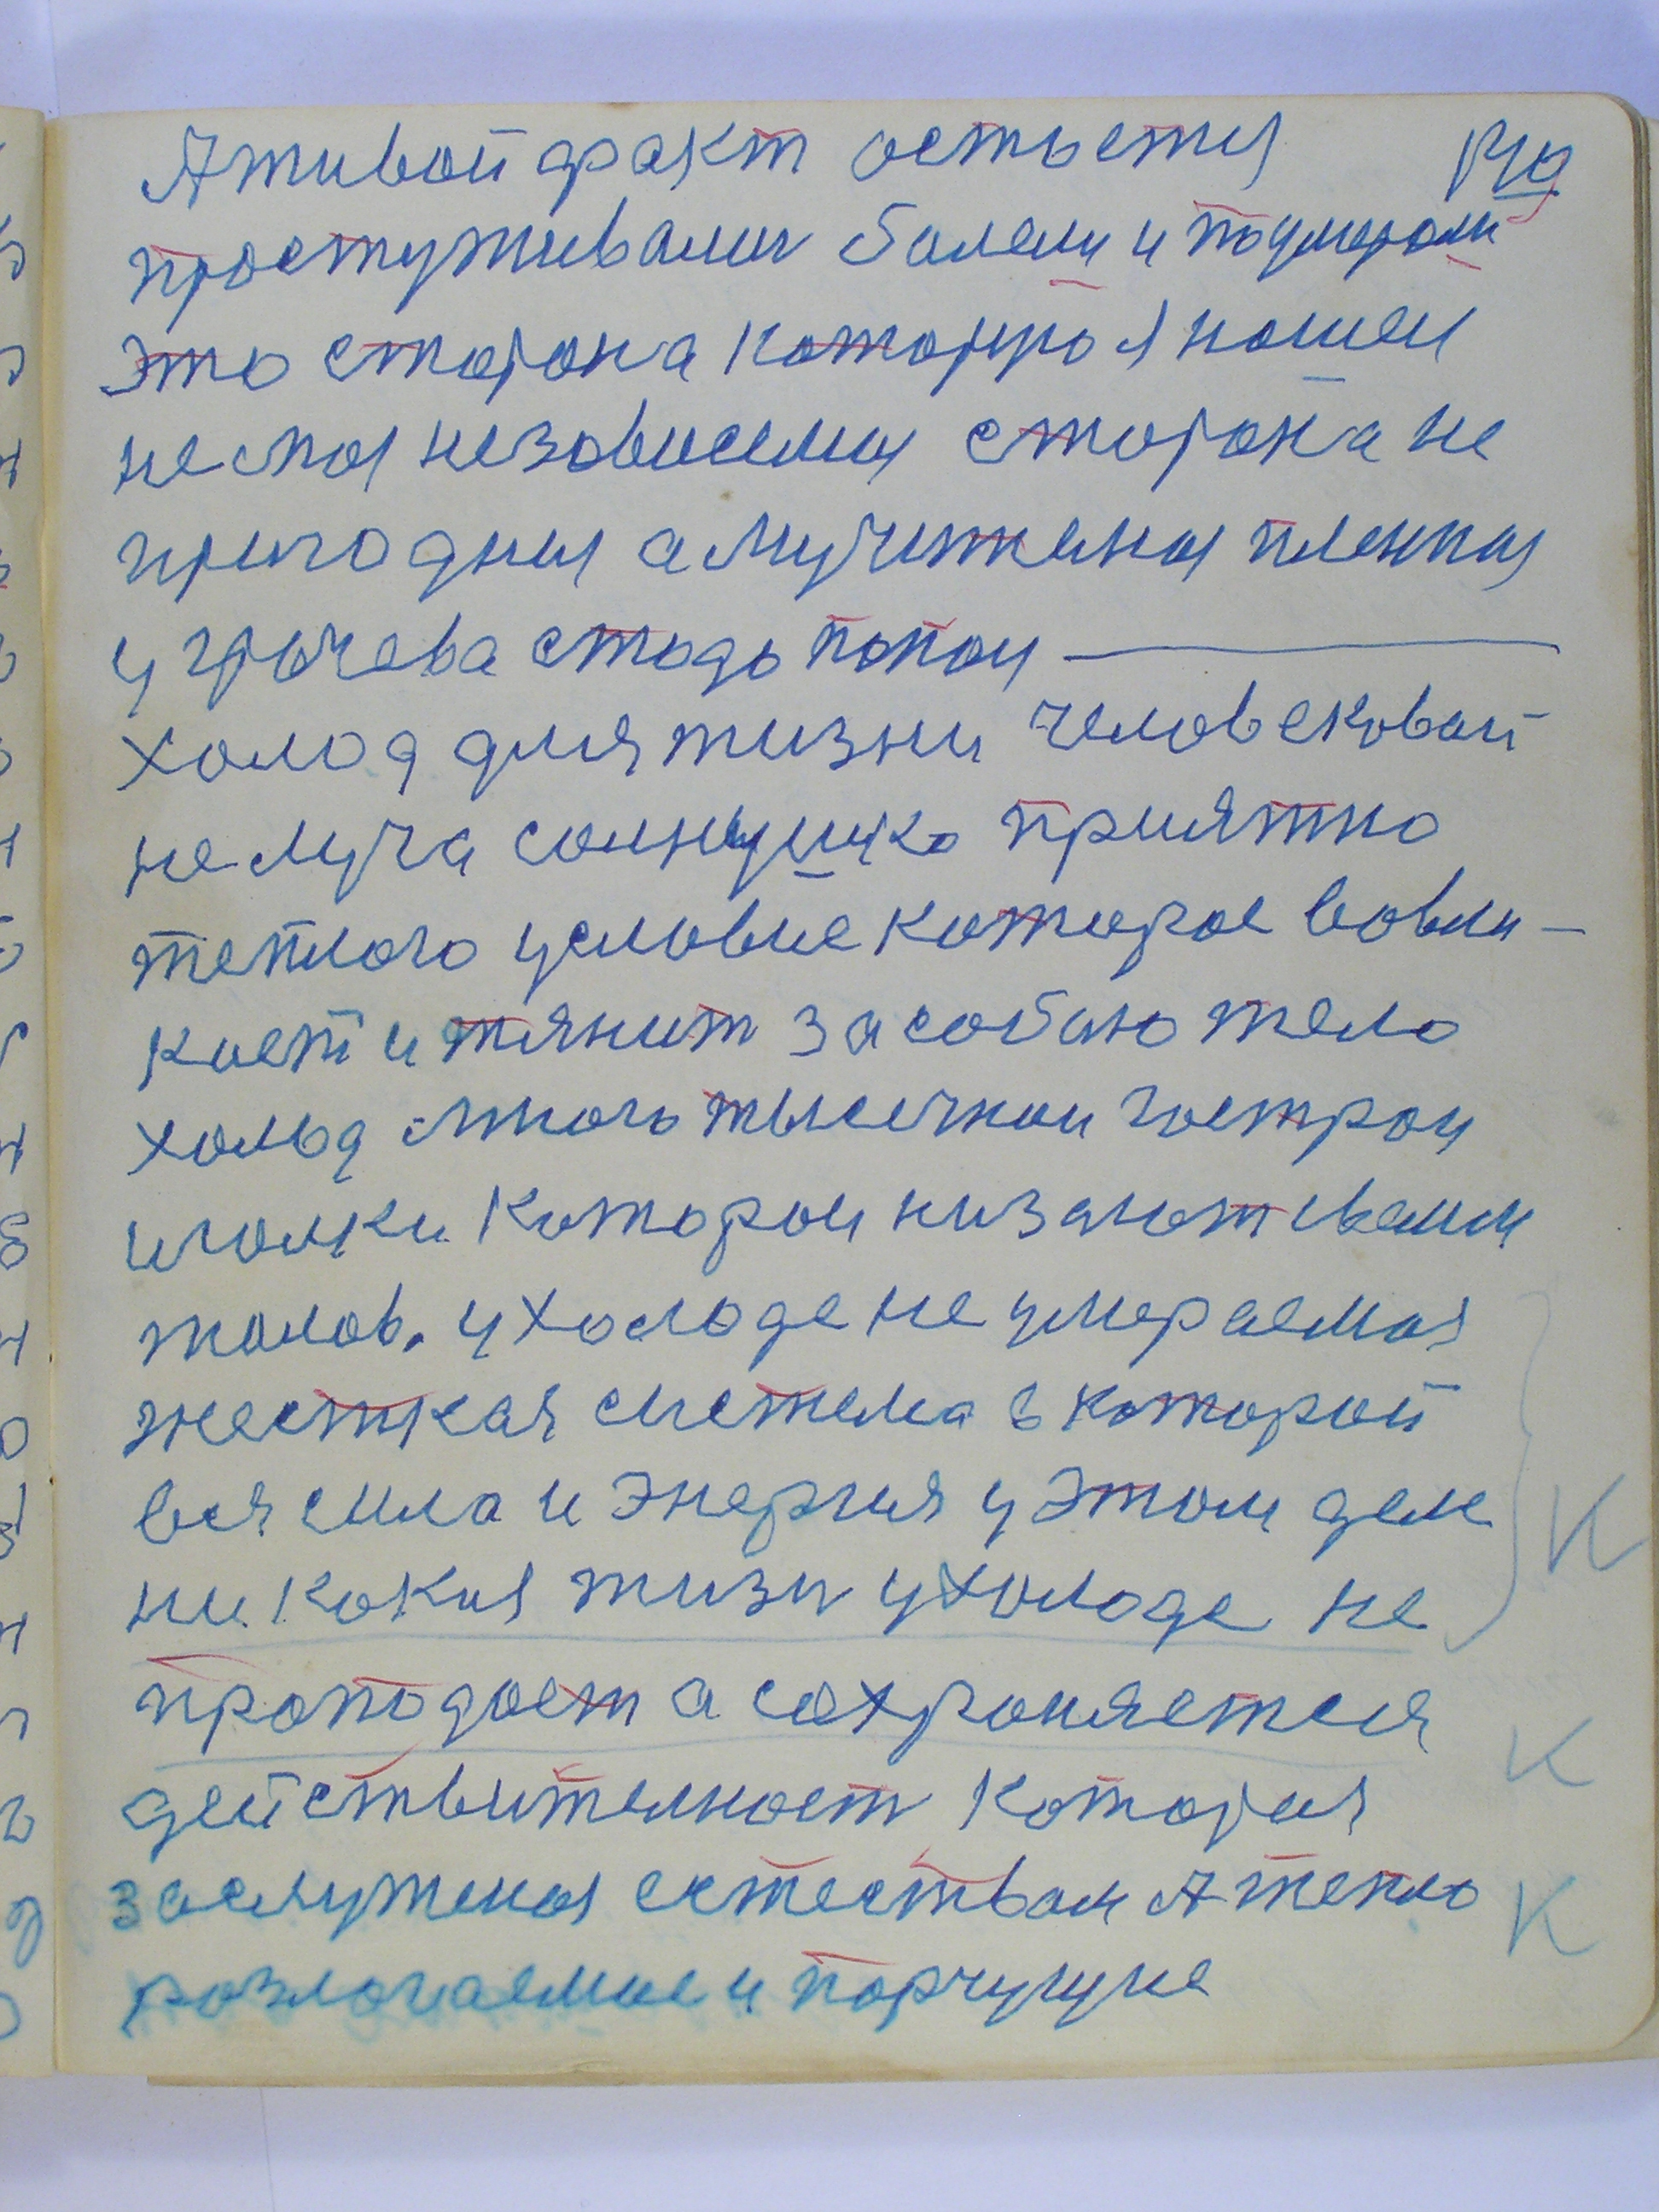 А живой факт остъется
простуживались болели и поумерали
это сторона которроя нашей
не моя независемая сторона не
пригодная а мучижена пленная
у хрычева стадо попои
холод для жизни человековай
не луча солнушко приятно
теплого условие которое вовли-
кает и тянит за собаю тело
хольд много тысечнои гострои
иголки которои низают своими
жалов. у холоде не умераемая
жесткая система в которой
вся сила и энергия у этом деле
ни какая жизн у холоде не
проподает а сохроняется
действителност которая
заслуженая естествам А тепло
розлогаемые и порчущие